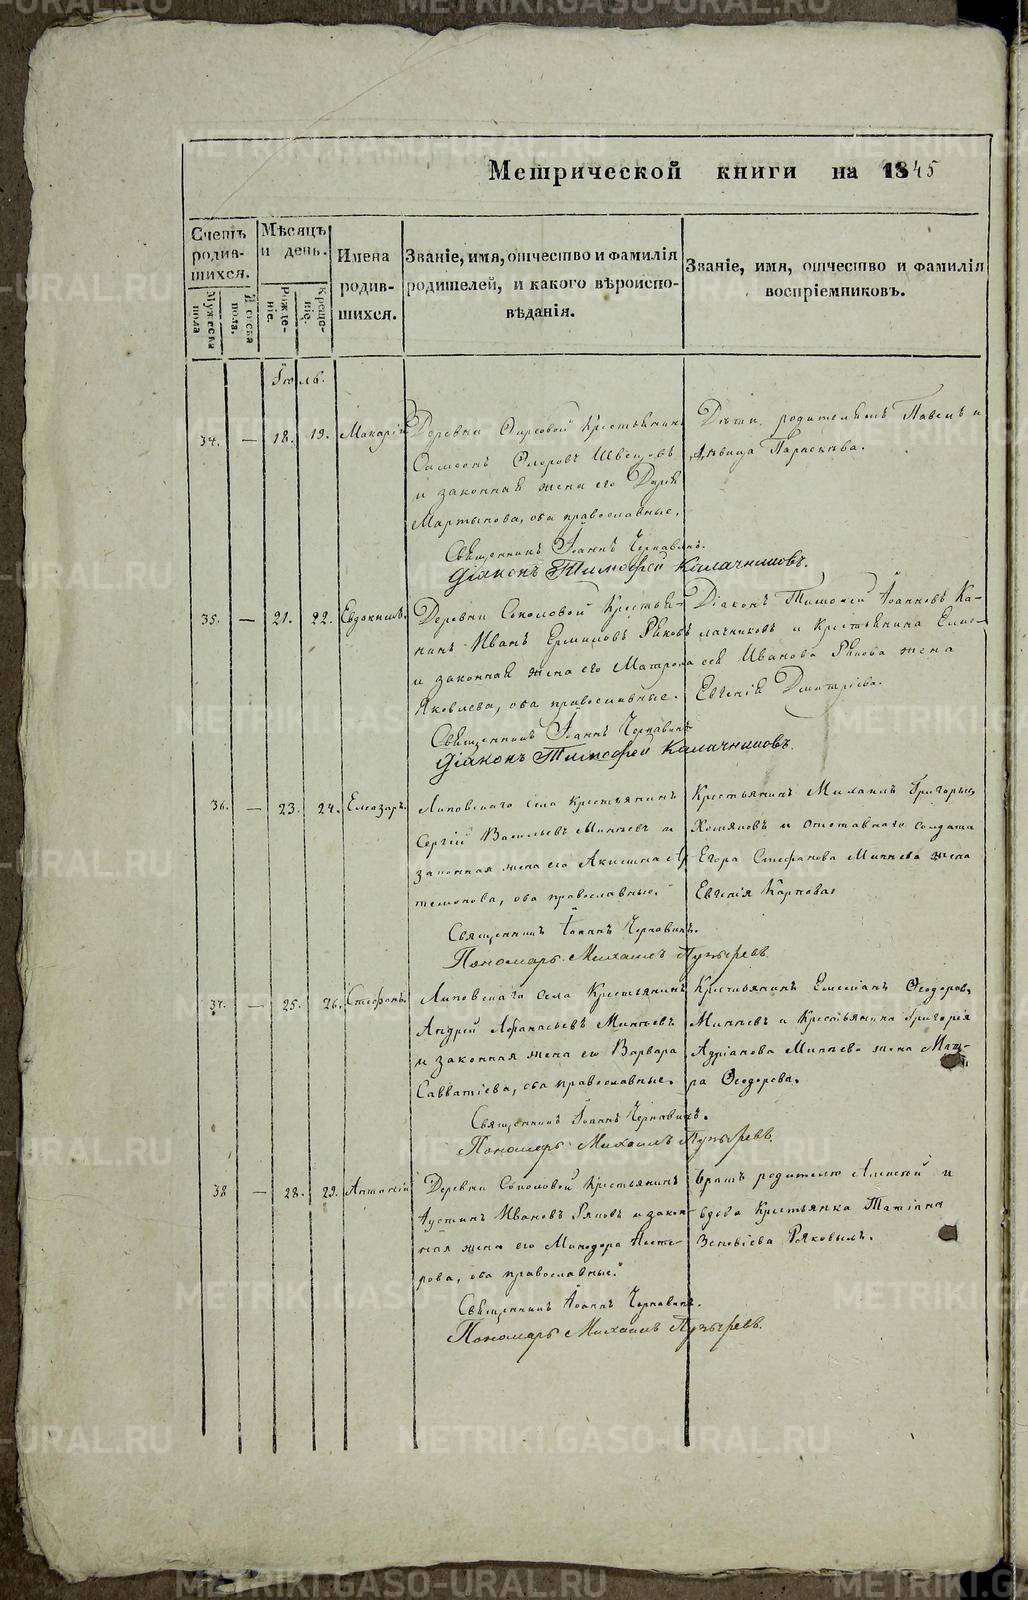 Метрической книги на 1845
Счетъ родившихся.
Мужеска пола
Женска пола.
Мѣсяцъ и день.
Рождение.
Крещение.
Имена родившихся.
Званіе, имя, отчество и фамилія родителей, и какого вѣроисповѣданія.
Званіе, имя, отчество и фамилія воспріемниковъ.
Іюль.
34. — 18. 19. Макарій
Деревни крестьянинъ
Самсонъ Швецовъ
и законная жена его Дарія
Мартынова, оба православные.
Дѣти родителямъ Павелъ и
дѣвица Параскева.
Священникъ Іоаннъ Чернавинъ.
Діаконъ Тимофей Калачниковъ.
35. — 21. 22. Евдокимъ.
Деревни Соколовой Крестья-
нинъ Иванъ Ермиловъ Ряковъ
и законная жена его Матрона
Яковлева, оба православные.
Діаконъ Тимофей Іоанновъ Ка-
лачниковъ и крестьянина Елис-
ея Иванова Рякова жена
Евгенія Дмитріева.
Священникъ Іоаннъ Чернавинъ
Діаконъ Тимофей Калачниковъ.
36. — 23. 24. Елеазаръ.
Липовскаго села крестьянинъ
Сергій Васильевъ Минѣевъ и
законная жена его Акилина Ар-
темонова, оба православные.
Крестьянинъ Григорьевъ
и отставнаго солдата
Егора Стефанова Минѣева жена
Евгенія Карпова.
Священникъ Іоаннъ Чернавинъ.
Пономарь Михаилъ Пузыревъ.
37. — 25. 26. Стефанъ.
Липовскаго села Крестьянинъ
Андрей Афанасьевъ Минѣевъ
и законная жена его Варвара
Савватіева, оба православные.
Крестьянинъ Емеліанъ Ѳеодоровъ
Минѣевъ и Крестьянина Григорія
Адріанова Минѣева жена
Ѳеодорова.
Священникъ Іоаннъ Чернавинъ.
Пономарь Михаилъ Пузыревъ.
38 — 28. 29. Антоній
Деревни Соколовой Крестьянинъ
Іустинъ Ивановъ Ряковъ и закон-
ная жена его Минодора Несте-
рова, оба православные.
Братъ родителю Алексѣй и
вдова Крестьянка Татіана
Зеновіева Ряковымъ.
Священникъ Іоаннъ Чернавинъ.
Пономарь Михаилъ Пузыревъ.
METRIKI.GASO-URAL.RU